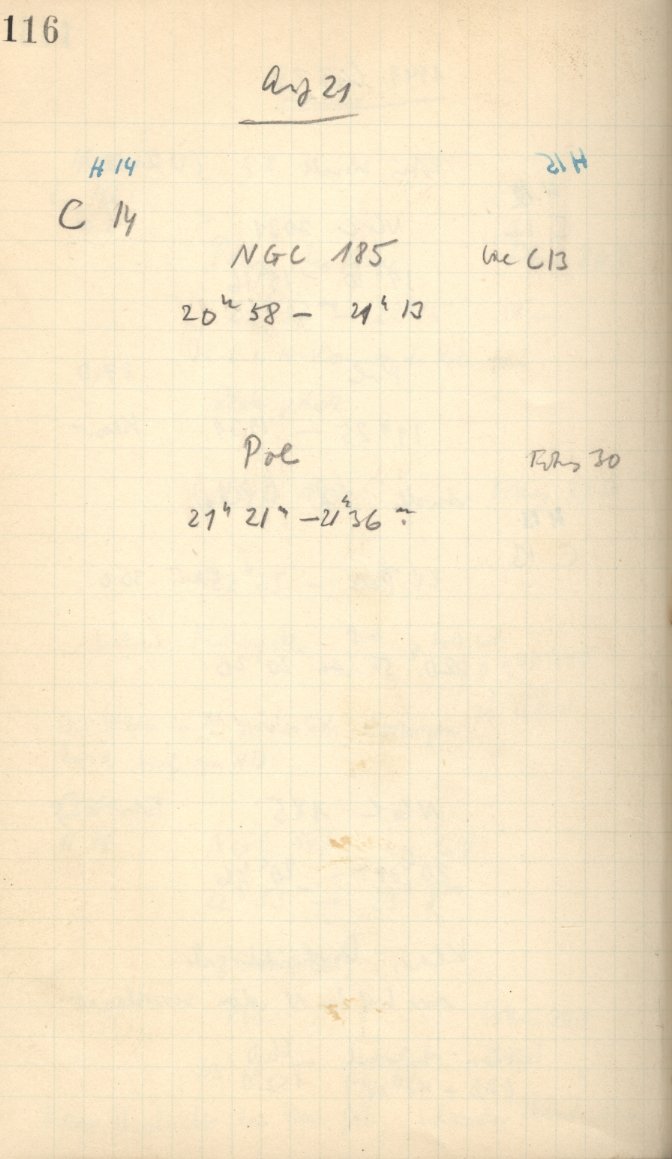 116
Aug 21
H 14
C 14
NGC 185 wie C13
20ʰ 58 – 21ʰ 13
Pol 30
21ʰ 21ᵐ – 21ʰ 36ᵐ